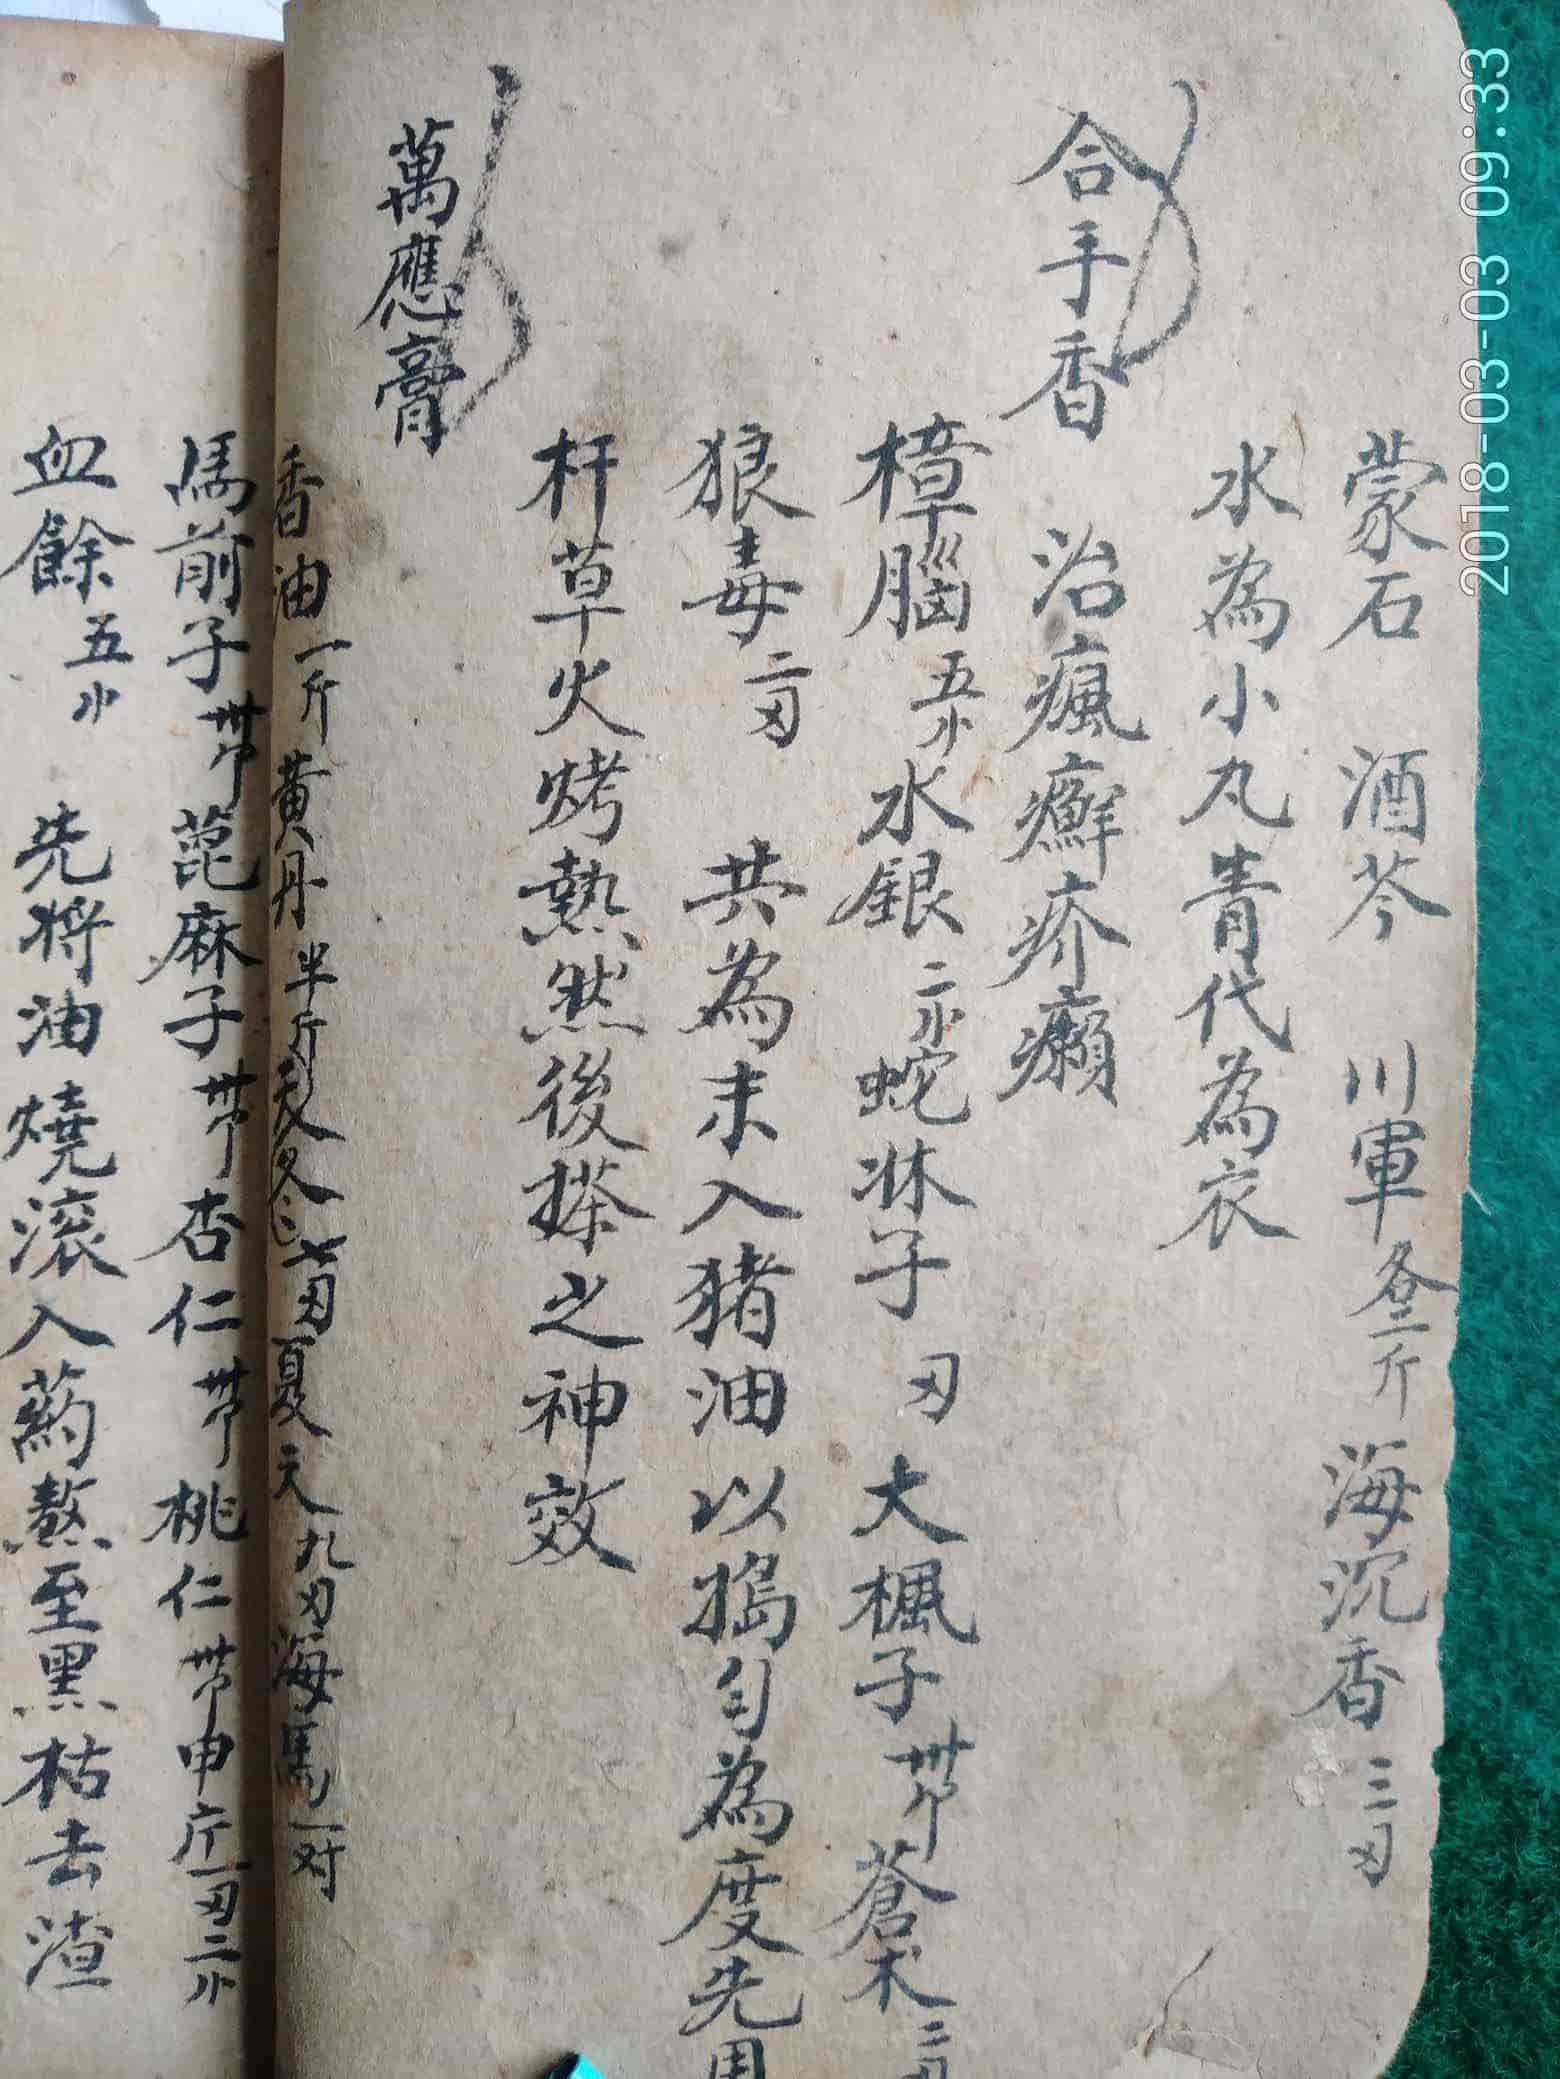 蒙石 酒芩 川軍各一斤 海沉香三刄
水為小丸青代為衣
合手香
治瘋癬疥癩
樟腦五小水銀二小蛇床子刄大楓子卅个蒼术二刄
狼毒二刄 共為末入猪油以搗匀為度先用
杆草火烤熱然後搽之神效
萬應膏
香油一斤黄丹半斤冬七刄夏天九刄海馬一对
馬前子卅个蓖麻子卅个杏仁卅个桃仁卅个申庁一刄二小
血餘五小 先将油燒滚入药熬至黑枯去渣
2018-03-03 09:33